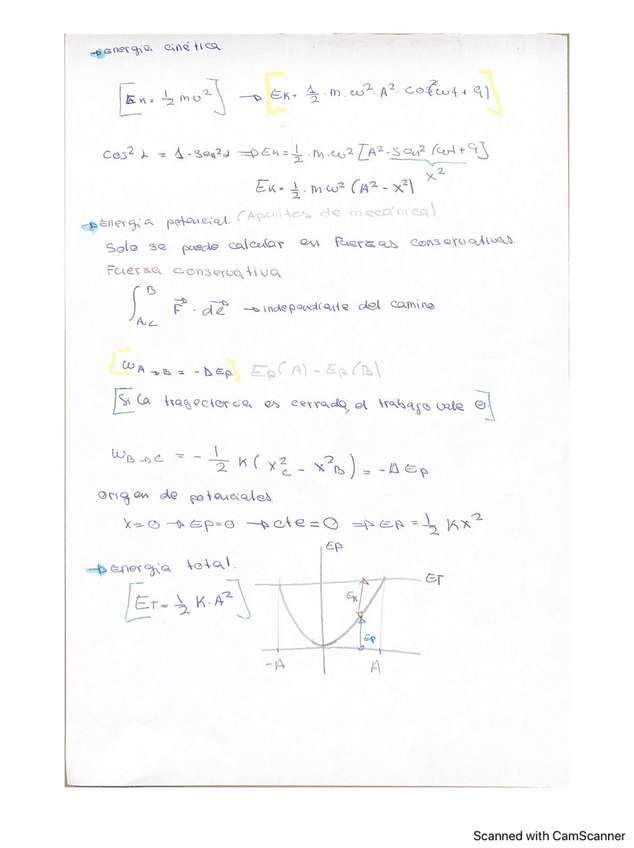 → Energia cinética
[Ek = 1/2 mv²] → [Ek = 1/2 · m · ω² · A² · cos²(ωt + φ)]
cos² α = 1 - sen² α ⇒ Ek = 1/2 · m · ω² [A² - sen² (ωt + φ]
x²
Ek = 1/2 · m ω² (A² - x²)
→ Energia potencial. (Apuntes de mecánica)
Solo se puede calcular en fuerzas conservativas.
Fuerza conservativa
∫ᴮ_A,C F⃗ · dl⃗ → independiente del camino
[W A→B = -ΔEp] Ep(A) - Ep(B)
[Si la tragectorcia es cerrada, el trabajo vale 0]
W B→C = - 1/2 K (x²c - x²B) = -ΔEp
origen de potenciales
x=0 → Ep=0 → cte=0 ⇒ Ep = 1/2 Kx²
Ep
→ Energia total.
ET
[ET = 1/2 K · A²]
Ek
Ep
-A
A
Scanned with CamScanner